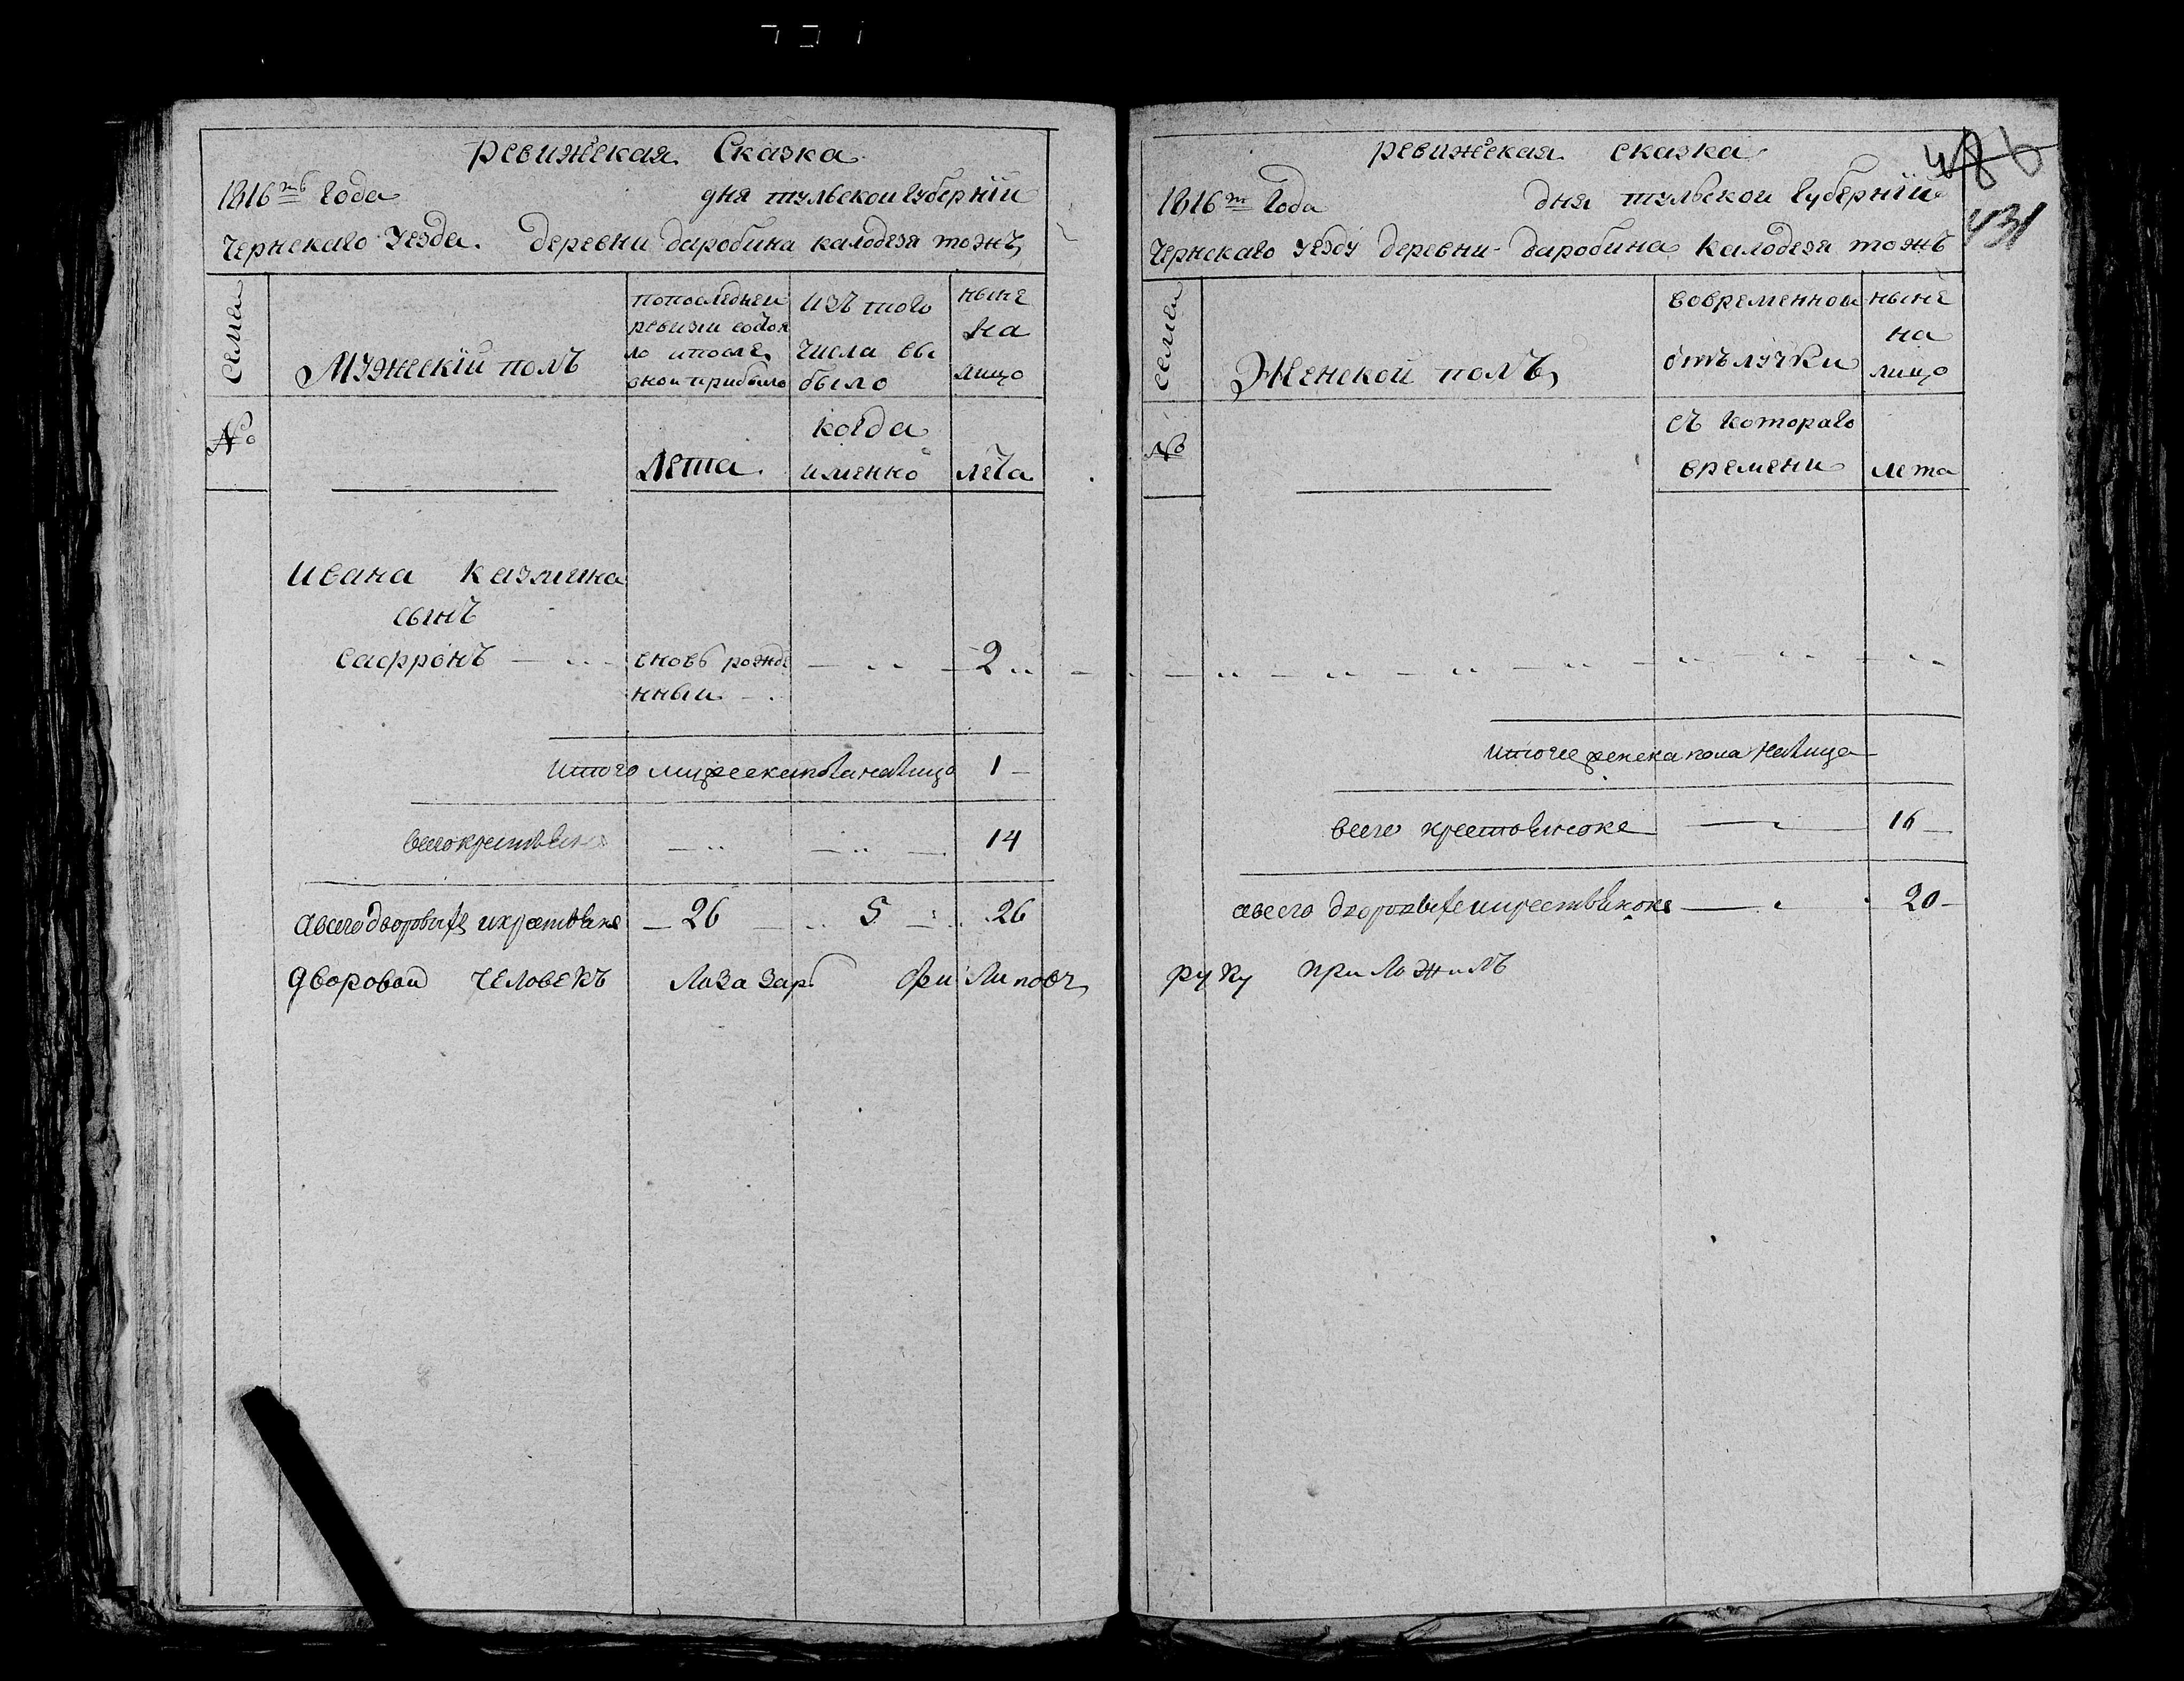 ревижская Сказка
1816го года дня тульской губернїи
Чернскаго уезда. деревни даробина калодезя тожъ
Семьи
Мужескїй полъ
попоследнеи ревизи состоя
ло ипосле
оной прибыло
изъ того
числа вы
было
ныне
на
лицо
№
лета.
когда
именно
лета
Ивана казмина
сынъ
сафронъ
вновь рожде
нныи
2
Итого мужеска пола налицо 1
всего крестьянъ 14
авсего дворовыхъ икрестьянъ 26 5 26
дворовой человекъ Лазарь Филиповъ
ревижская сказка
486
431
1816го года дня тульской губернїи
Чернскаго уезду деревни даробина калодезя тожъ
семьи
Женской полъ
вовременной
отълучки
ныне
на
лицо
№
съ котораго
времени
лета
Итого женска пола налицо
всего крестьянокъ 16
авсего дворовыхъ икрестьянокъ 20
руку приложилъ